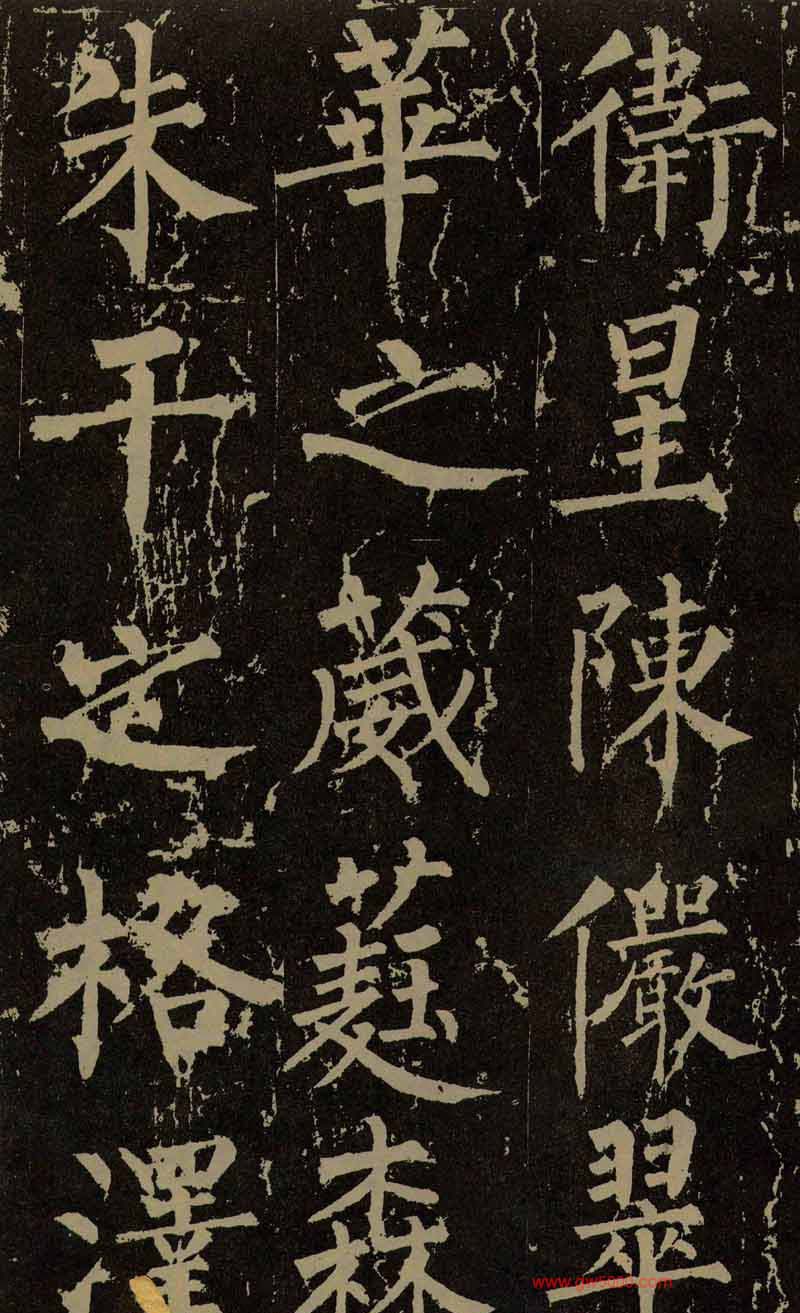 衛星陳儼翠
華之葳蕤森
朱干之格澤
www.gw5000.com